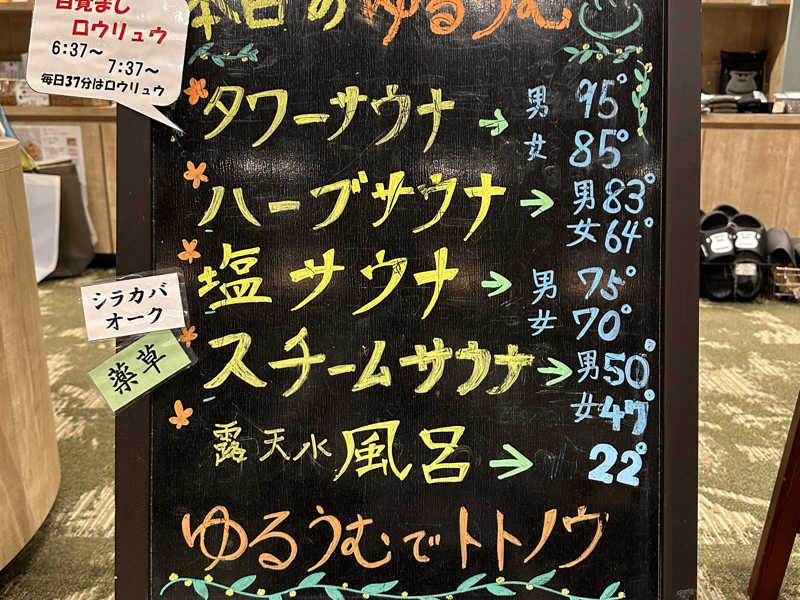 目覚まし
ロウリュウ
6:37～
7:37～
毎日37分はロウリュウ
本日のゆるうむ
タワーサウナ → 男 95°
女 85°
ハーブサウナ → 男 83°
女 64°
塩サウナ → 男 75°
女 70°
シラカバ
オーク
スチームサウナ → 男 50°
女 47°
薬草
露天水風呂 → 22°
ゆるうむでトトノウ